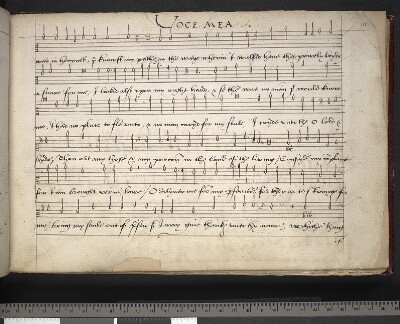 VOCE MEA
was in heavynes, thou knewest my pathe, in the waye wherin I walked have they prevely layde
a snare for me, I looked also upon my right hande, & se there was no man I would know
me, I had no place to fle unto, & no man cared for my soule I cryed unto the O lord &
sayde, Thou art my hope & my porcion in the land of the living, Consider my complaint
for I am brought verie lowe, O deliver me fro my persecutors for they ar to stronge for
my bring my soule out of prison that I may give thanks unto thy name, which thing